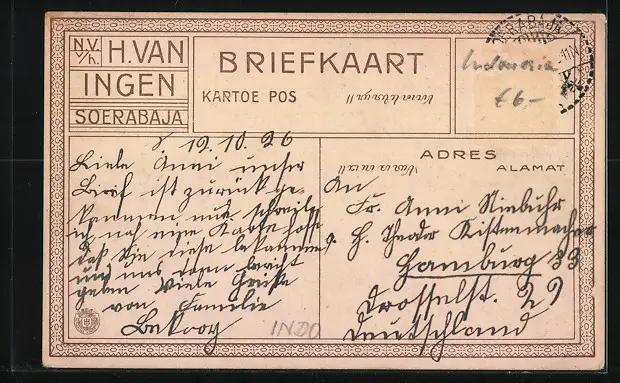 N.V. v/h. H. VAN
INGEN
SOERABAJA
BRIEFKAART
KARTOE POS
Indonesia
£6,-
S. 19.10.26
Liebe Anni unser
Brief ist zurück ge-
kommen und schreibe
ich noch eine Karte hoffe
das Sie diese bekommen
und uns dann
geben Viele Grüße
von Familie
Bekoog
INDO
ADRES
ALAMAT
An
Fr. Anni Niebuhr
p. H. Theodor Kistenmacher
Hamburg 33
Drosselst. 29
Deutschland